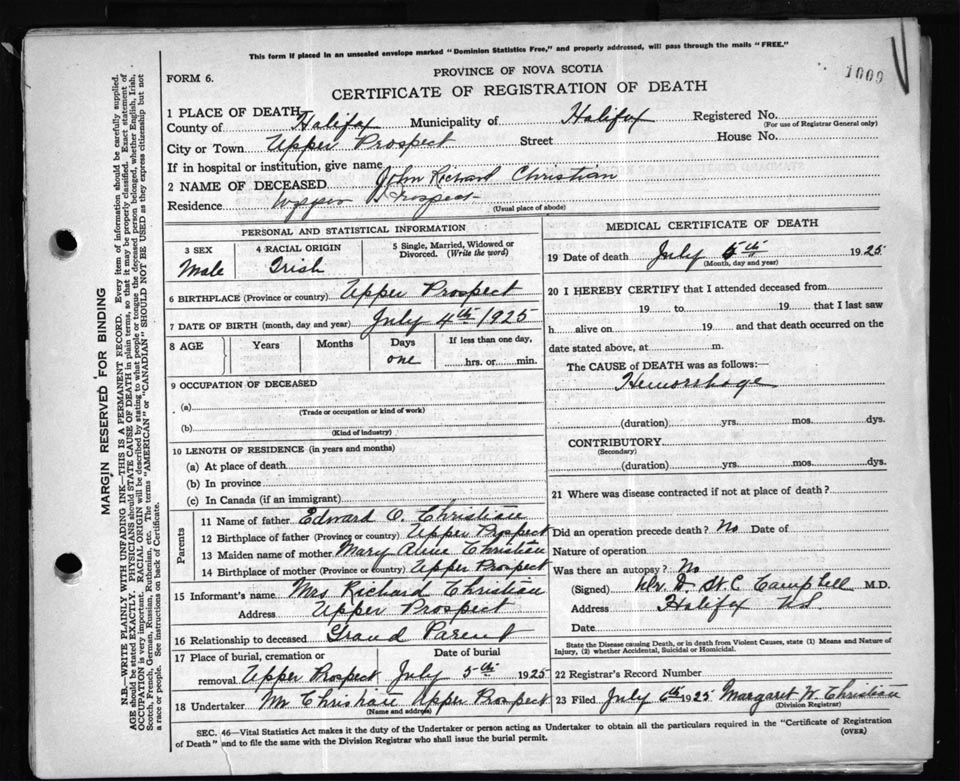 This form if placed in an unsealed envelope marked "Dominion Statistics Free," and properly addressed, will pass through the mails "FREE."
1009
FORM 6.
PROVINCE OF NOVA SCOTIA
CERTIFICATE OF REGISTRATION OF DEATH
1 PLACE OF DEATH
County of Halifax Municipality of Halifax Registered No.
(For use of Registrar General only)
City or Town Upper Prospect Street House No.
If in hospital or institution, give name
2 NAME OF DECEASED John Richard Christian
Residence Upper Prospect
(Usual place of abode)
PERSONAL AND STATISTICAL INFORMATION
3 SEX 4 RACIAL ORIGIN 5 Single, Married, Widowed or Divorced. (Write the word)
Male Irish
6 BIRTHPLACE (Province or country) Upper Prospect
7 DATE OF BIRTH (month, day and year) July 4th 1925
8 AGE Years Months Days If less than one day,
one hrs. or min.
9 OCCUPATION OF DECEASED
(a)
(Trade or occupation or kind of work)
(b)
(Kind of industry)
10 LENGTH OF RESIDENCE (in years and months)
(a) At place of death
(b) In province
(c) In Canada (if an immigrant)
Parents
11 Name of father Edward O. Christian
12 Birthplace of father (Province or country) Upper Prospect
13 Maiden name of mother Mary Christian
14 Birthplace of mother (Province or country) Upper Prospect
15 Informant's name Mrs Richard Christian
Address Upper Prospect
16 Relationship to deceased Grand Parent
17 Place of burial, cremation or removal Date of burial
Upper Prospect July 5th 1925
18 Undertaker Mr Christian Upper Prospect
(Name and address)
MEDICAL CERTIFICATE OF DEATH
19 Date of death July 5th 1925
(Month, day and year)
20 I HEREBY CERTIFY that I attended deceased from
19 to 19 that I last saw
h alive on 19 and that death occurred on the
date stated above, at m.
The CAUSE OF DEATH was as follows:
Hemorrhage
(duration) yrs. mos. dys.
CONTRIBUTORY
(Secondary)
(duration) yrs. mos. dys.
21 Where was disease contracted if not at place of death?
Did an operation precede death? No Date of
Nature of operation
Was there an autopsy? No
(Signed) Dr. D. St C Campbell M.D.
Address Halifax N.S.
Date
State the Disease causing Death, or in death from Violent Causes, state (1) Means and Nature of
Injury, (2) whether Accidental, Suicidal or Homicidal.
22 Registrar's Record Number
23 Filed July 6th 1925 Margaret W. Christian
(Division Registrar)
SEC. 46—Vital Statistics Act makes it the duty of the Undertaker or person acting as Undertaker to obtain all the particulars required in the "Certificate of Registration
of Death" and to file the same with the Division Registrar who shall issue the burial permit.
(OVER)
MARGIN RESERVED FOR BINDING
N.B.—WRITE PLAINLY WITH UNFADING INK—THIS IS A PERMANENT RECORD. Every item of information should be carefully supplied.
AGE should be stated EXACTLY. PHYSICIANS should STATE CAUSE OF DEATH in plain terms, so that it may be properly classified. Exact statement of
OCCUPATION is very important. RACIAL ORIGIN will be described by stating to what people or tongue the deceased person belonged, whether English, Irish,
Scotch, French, German, Russian, Ruthenian, etc. The terms "AMERICAN" or "CANADIAN" SHOULD NOT BE USED as they express citizenship but not
a race or people. See instructions on back of Certificate.